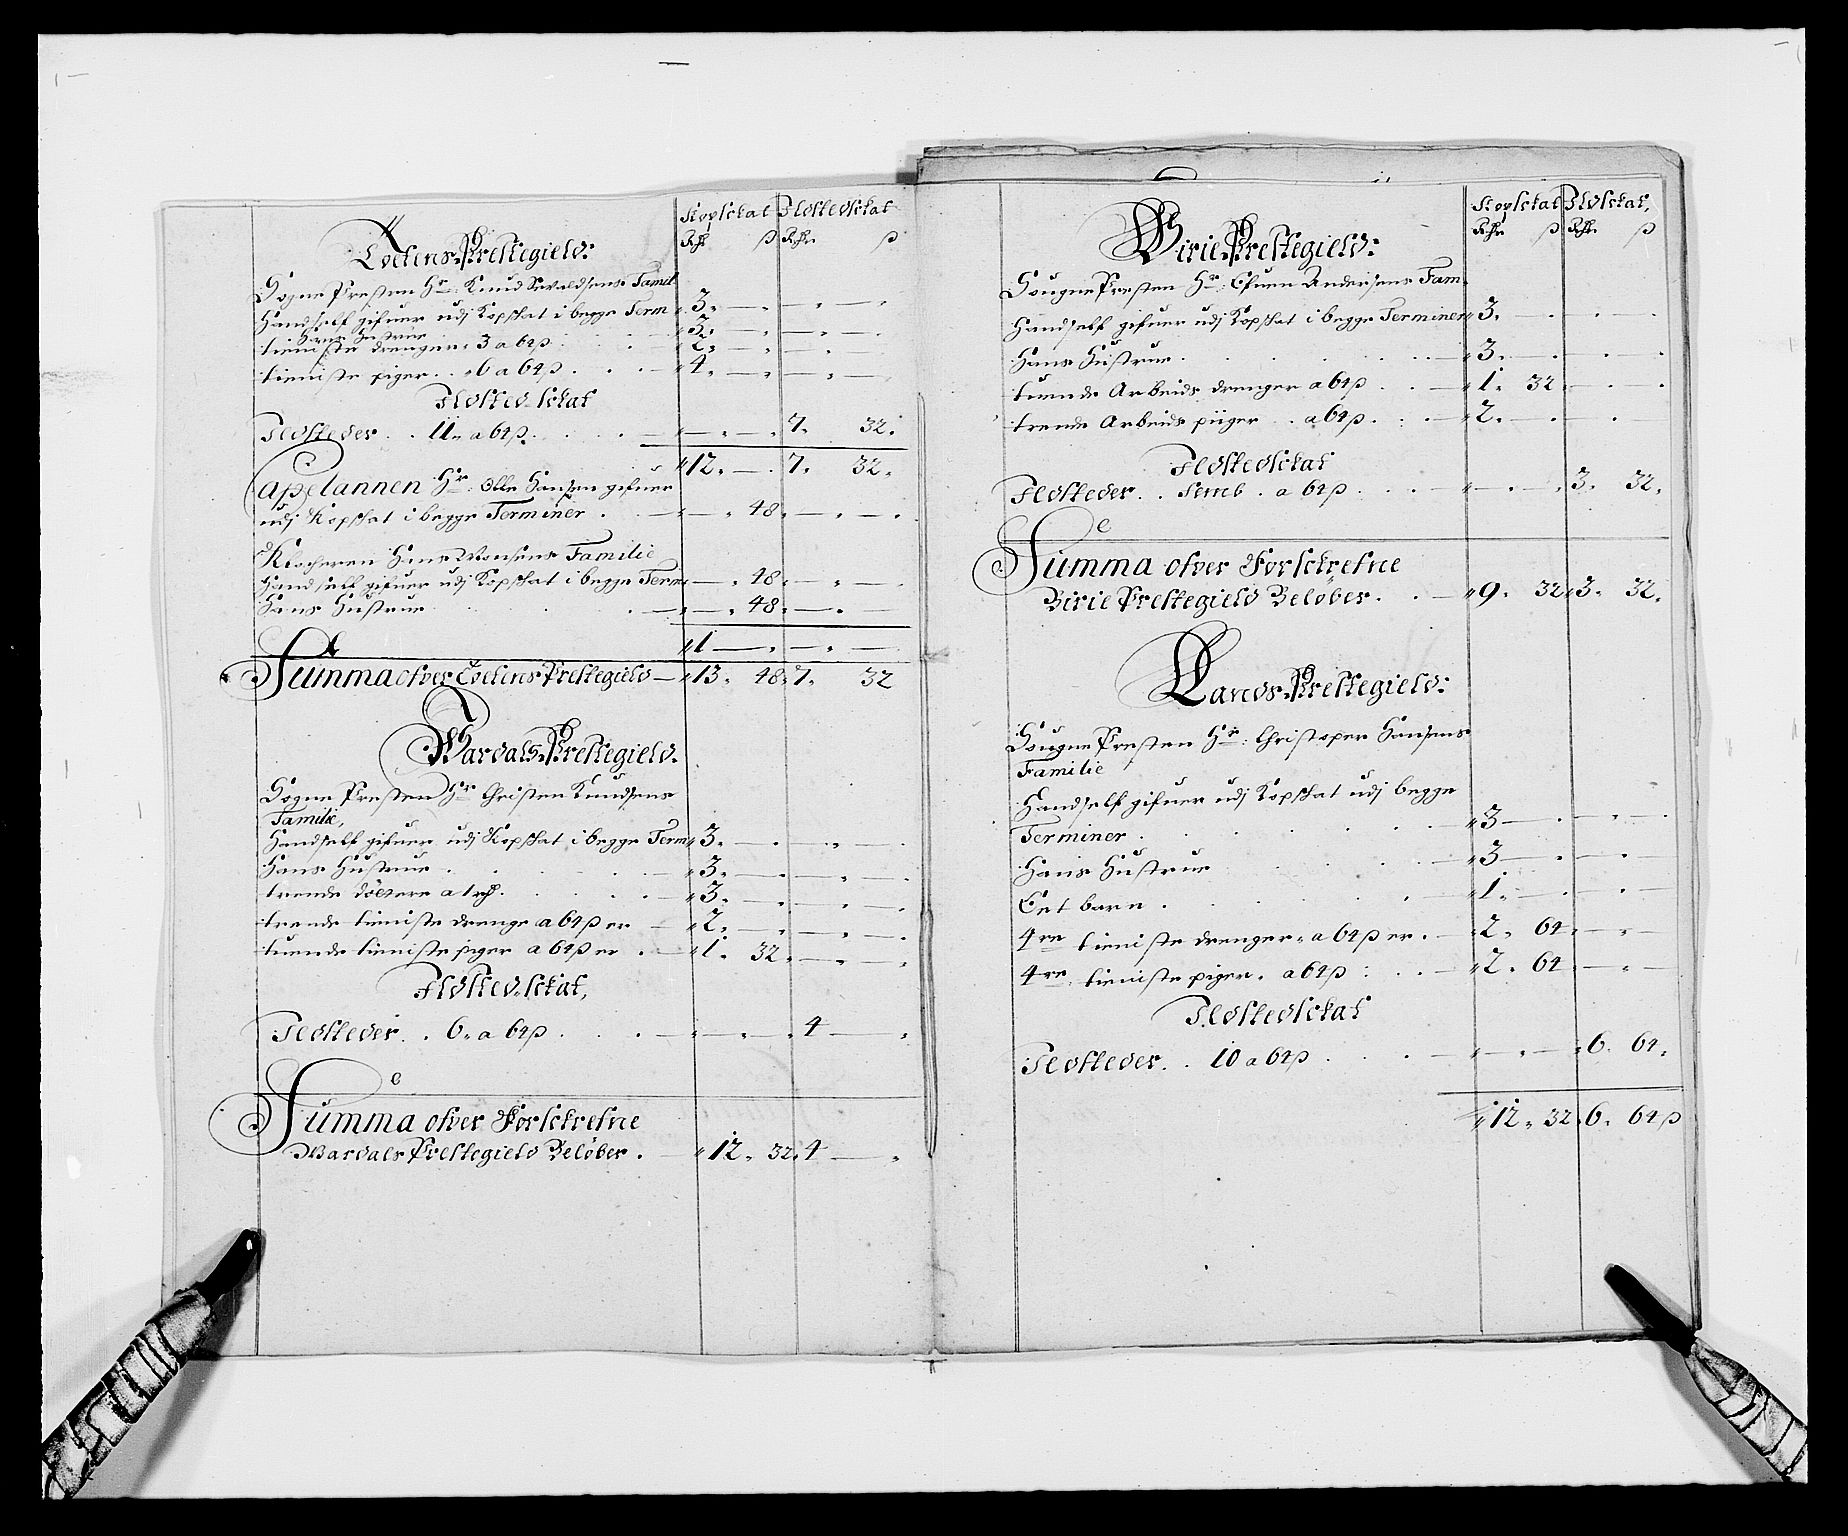 Kopskat Ildstedskat
Rdr ß Rdr ß
Totens Prestegield:
Sogne Presten Hr: Knud Sevaldsens Famil
Hand self gifuer udj Kopskat i begge Term 3.
Hans Hustrue 3.
tieniste drenger 3 a 64 ß 2.
tieniste piger 6 a 64 ß 4.
Ildsted skat
Ildsteder 11 a 64 ß 7. 32.
12. 7. 32.
Capelannen Hr: Olle Hansen gifuer
udj Kopskat i begge Terminer 48
Klocheren Hans Familie
Hand self gifuer udj Kopskat i begge Term 48
Hans Hustrue 48
1
Summa ofver Totens Prestegield 13. 48. 7. 32
Wardals Prestegield.
Sogne Presten Hr Christen Knudsens
Familie,
Hand self gifuer udj Kopskat i begge Term 3.
Hans Hustrue 3.
trende döctere a 1 rdr. 3.
trende tieniste drenge a 64 ß er 2.
tuende tieniste piger a 64 ß er 1. 32.
Ildsted skat,
Ildsteder 6 a 64 ß 4
Summa ofver Forskrefne
Wardals Prestegield Beløber 12. 32. 4
Kopskat Ildskat,
Rdr ß Rdr ß
Birie Prestegield:
Sougne Presten Hr: Andersens Fam
Hand self gifuer udj Kopskat i begge Terminer 3.
Hans Hustrue 3.
tuende Arbeids drenger a 64 ß 1. 32
trende Arbeids piiger a 64 ß 2.
Ildstedskat
Ildsteder femb a 64 ß 3. 32.
Summa ofver Forskrefne
Birie Prestegield Beløber 9. 32. 3. 32.
Lands Prestegield:
Sougne Presten Hr: Christoper Hansens
Familie
Hand self gifuer udj Kopskat udj begge
Terminer 3
Hans Hustrue 3
Eet barn 1.
4re tieniste drenger a 64 ß er 2. 64
4re tieniste piger a 64 ß 2. 64
Ildstedskat
Ildsteder 10 a 64 ß 6. 64.
12. 32. 6. 64 ß